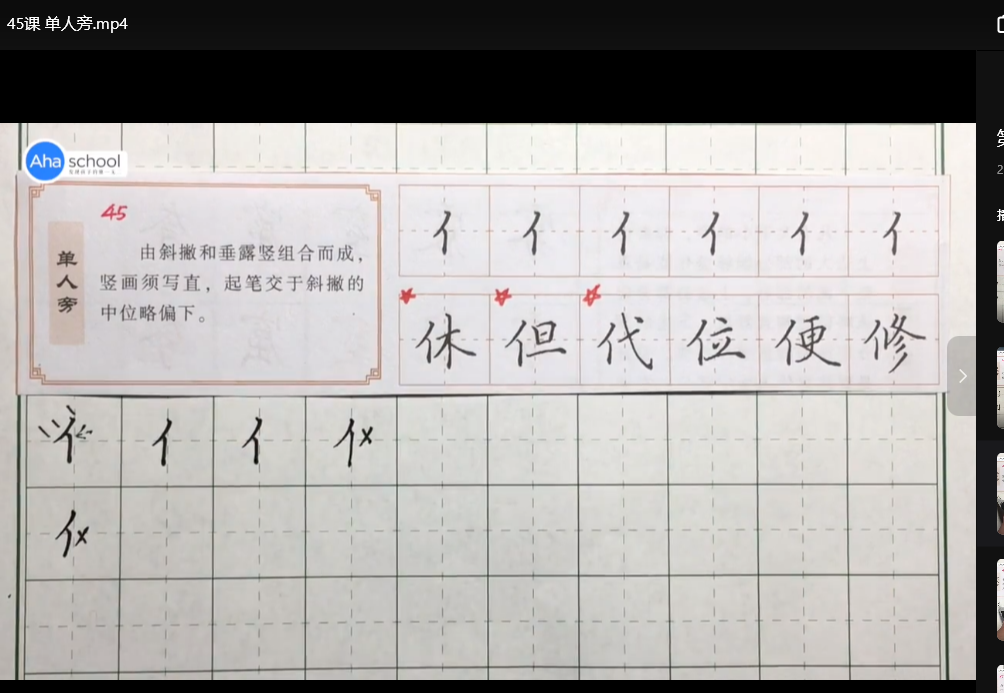 45课 单人旁.mp4
Aha school
45
单人旁
由斜撇和垂露竖组合而成,
竖画须写直，起笔交于斜撇的
中位略偏下。
亻 亻 亻 亻 亻 亻
休 但 代 位 便 修
亻 亻 亻 亻 x
亻 x